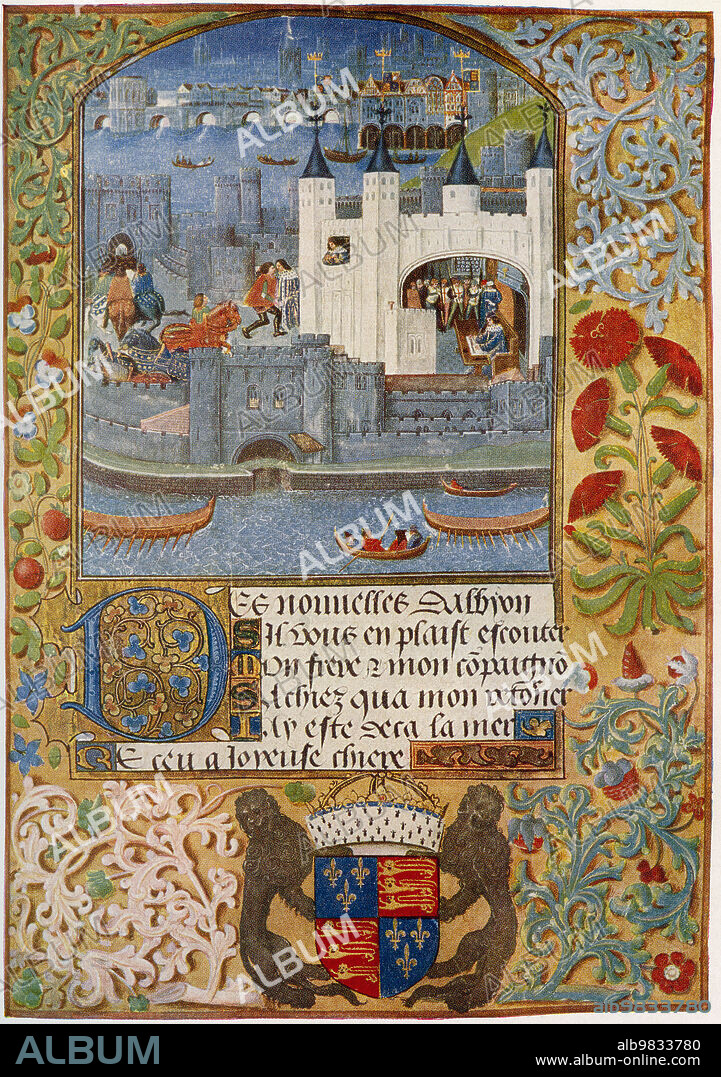 ALBUM
ALBUM
ALBUM
ALBUM
Des nouuelles Dalbyon
Sil vous en plaist escouter
Mon frere & mon cōpaignō
Sachiez qua mon retorner
ALBUM
Jay este deca la mer
Receu a Joyeuse chiere
ALBUM
ALBUM
alb9833780
ALBUM
alb9833780
www.album-online.com